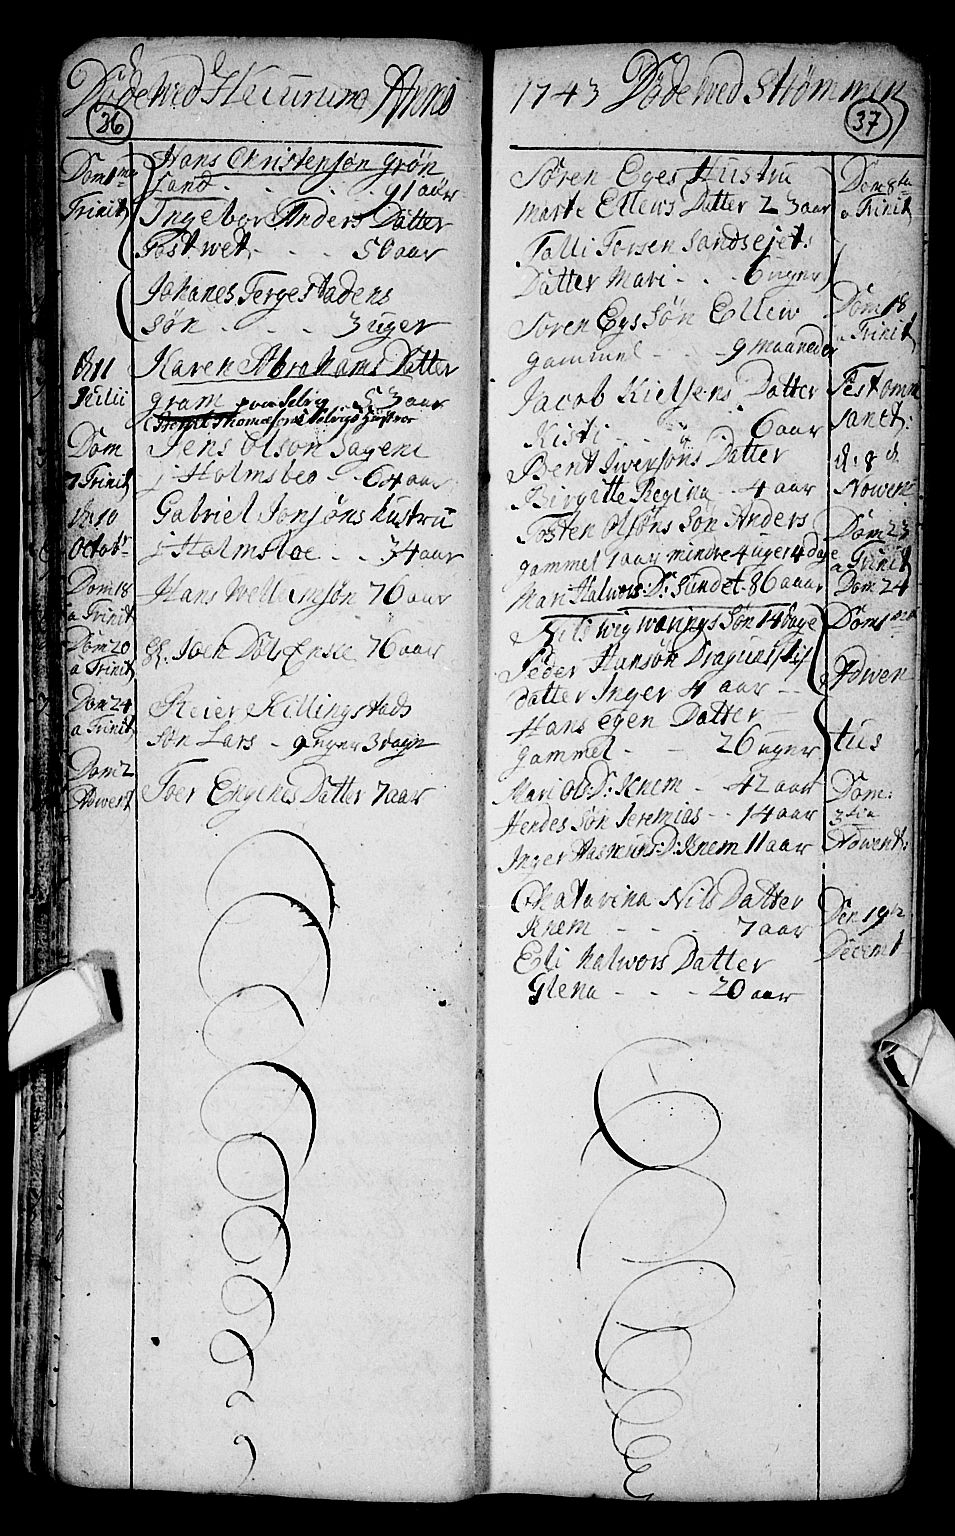 Döde wed Hurum Anno
36
Dom 1ma
Trinit
Hans Christensøn grøn
sand - - - 91 aar
Ingebor Anders Datter
Tostwet - - - 50 aar
Johanes Tergestadens
søn - - - 3 uger
d: 11
Julii
Karen Abrahams Datter
gram 53 aar
Dom
7 Trinit
Jens Olson Sagene
i Holmsboe - 64 aar
d: 10
Octobr
Gabriel Jonsøns hustru
i Holmsboe - - 34 aar
Dom 18
a Trinit
Hans Wellumsøn 76 aar
Dom 20
a Trinit
76 aar
Dom 24
a Trinit
Reier Killingstads
søn Lars - 9 uger 3 dage
Dom 2
Adwent
Toer Engenes Datter 7 aar
1743 Döde wed Strømmen
37
Søren Eges Hustru
Marte Ellews Datter 23 aar
Dom 8ta
a Trinit
Tolli Torsen Sandsejets
Datter Mari - - 6 uger
Soren Egs Søn Ellew
gammel - - - 9 maaneder
Dom 18
a Trinit
Jacob Kielsens Datter
Kisti - - - 6 aar
Fest omn
sanct:
Bent Iwersøns Datter
Birgitte Regina - 4 aar
d: 8
Nowem
Tosten Olsøns Søn Anders
gammel 1 aar mindre 4 uger 4 dage
Dom 23
a Trinit
Mari Halwors: D: Sundet - 86 aaar
Dom 24
Søn 14 dage
Dom 1ma
Peder Hansøn Draguns
datter Inger 4 aar - -
Adwen
Hans egen Datter
gammel - - - 26 uger
tus
Mari Ol: D: Knem - 42 aar
Hendes Søn Jeremias - - 14 aar
Inger Rasmus: D: Knem 11 aar
Dom:
3tia
Adwent:
Chatarina Nils Datter
Knem - - - 7 aar
Den 19de
Decembr
Eli halwors Datter
Glena - - - 20 aar